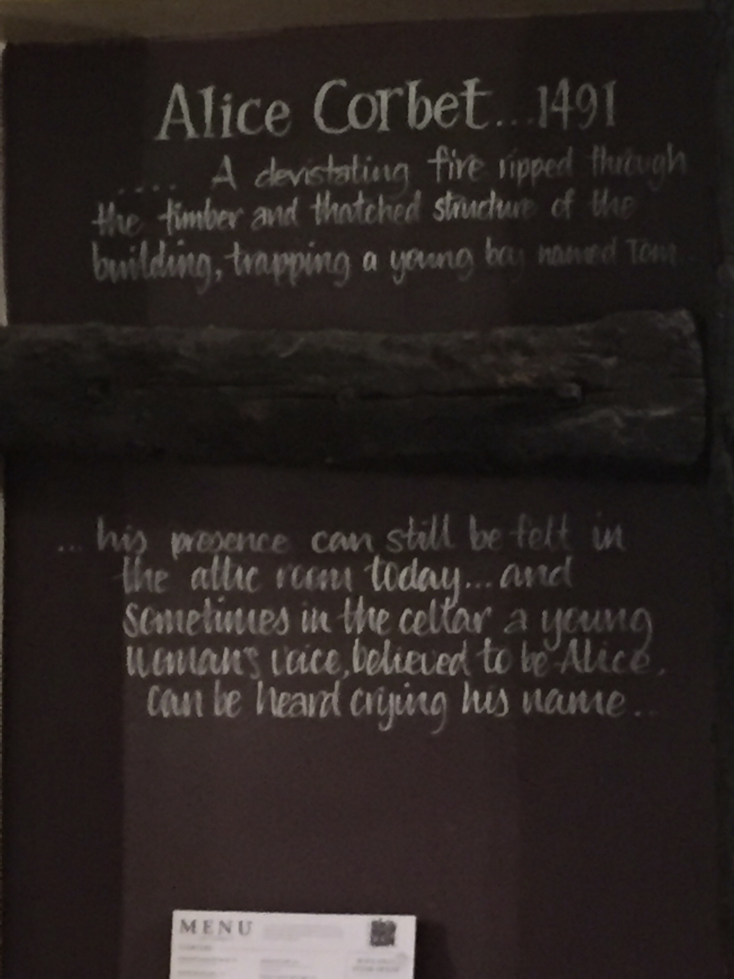 Alice Corbet...1491
.... A devistating fire ripped through
the timber and thatched structure of the
building, trapping a young boy named Tom...
... his presence can still be felt in
the attic room today... and
sometimes in the cellar a young
woman's voice, believed to be Alice,
can be heard crying his name...
MENU